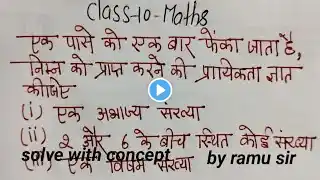 Class-10-Maths
एक पासे को एक बार फेंका जाता है,
निम्न को प्राप्त करने की प्रायिकता ज्ञात
कीजिए
(i) एक अभाज्य संख्या
(ii) 2 और 6 के बीच स्थित कोई संख्या
solve with concept by ramu sir
(iii) एक विषम संख्या